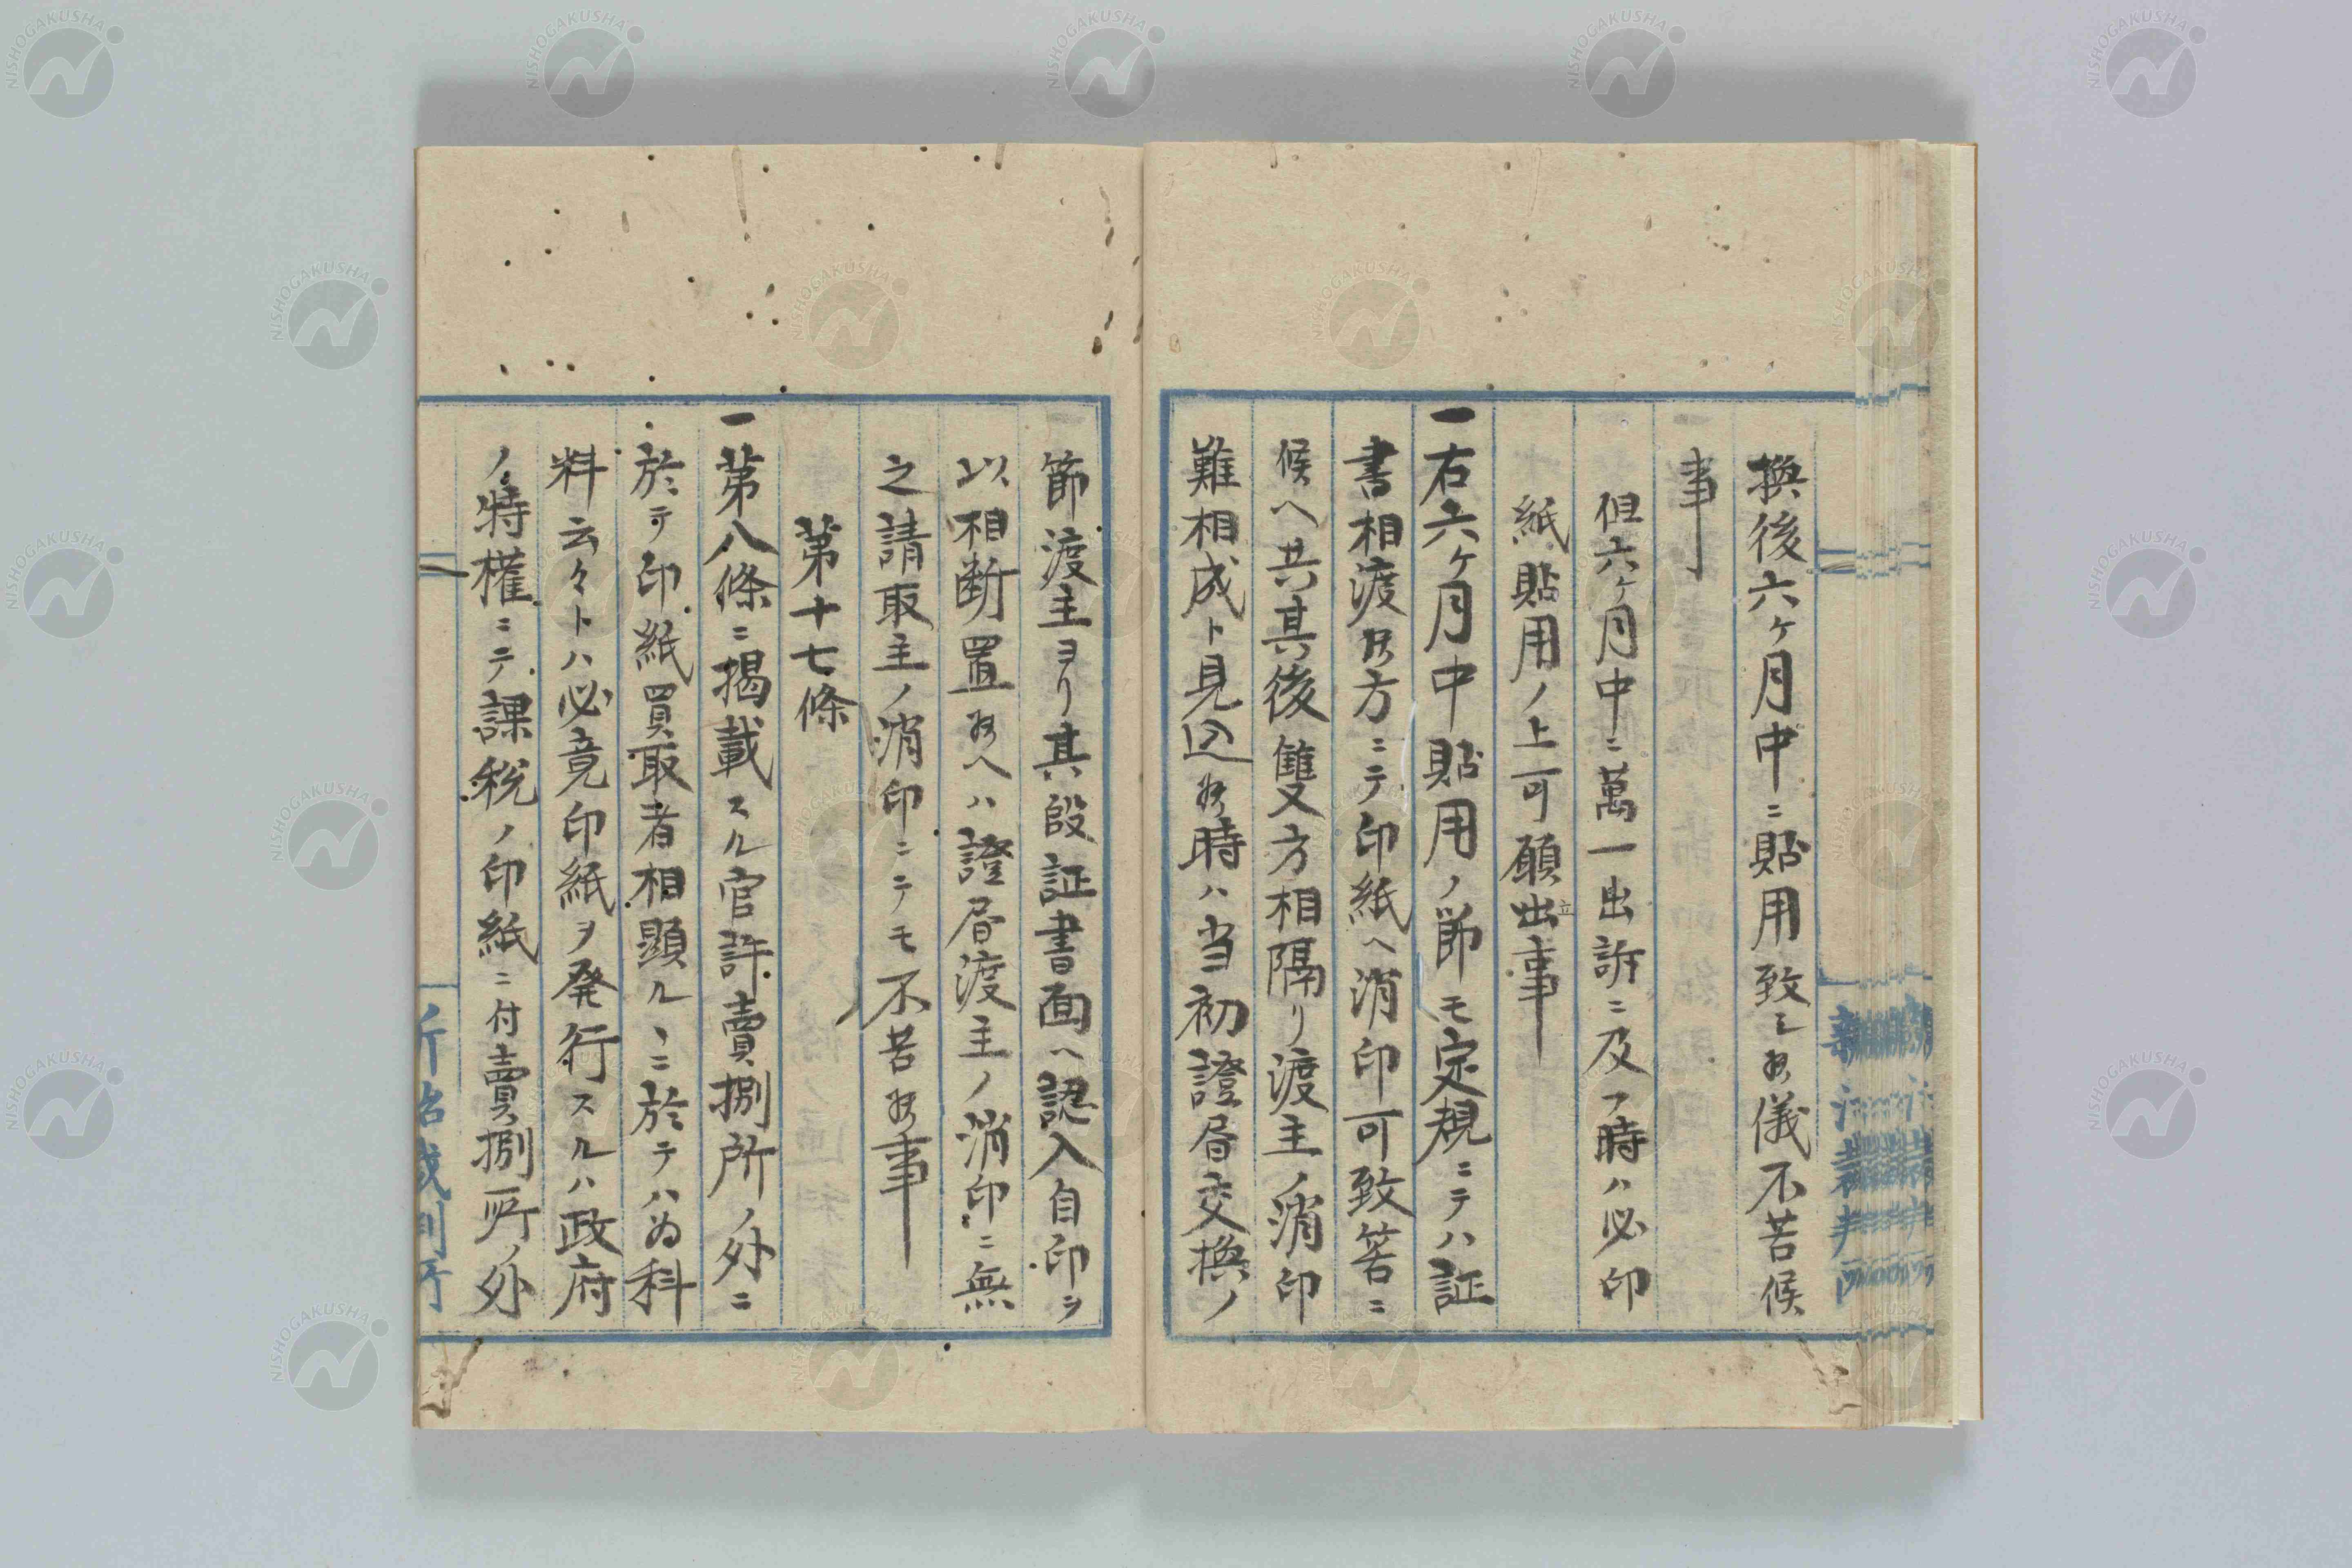 換後六ケ月中ニ貼用致シ候儀不苦候
事
但六ケ月中ニ萬一出訴ニ及フ時ハ必印
紙貼用ノ上可願出事
立
一右六ケ月中貼用ノ節モ定規ニテハ証
書相渡候方ニテ印紙ヘ消印可致筈ニ
候ヘ共其後雙方相隔リ渡主ノ消印
難相成ト見込候時ハ当初證書交換ノ
節渡主ヨリ其段証書面ヘ認入自印ヲ
以相断置候ヘハ證書渡主ノ消印ニ無
之請取主ノ消印ニテモ不苦候事
第十七條
一第八條ニ掲載スル官許賣捌所ノ外ニ
於テ印紙買取者相顕ルヽニ於テハ為科
料云々トハ必竟印紙ヲ発行スルハ政府
ノ特權ニテ課税ノ印紙ニ付賣捌所ノ外
新治裁判所
NISHOGAKUSHA